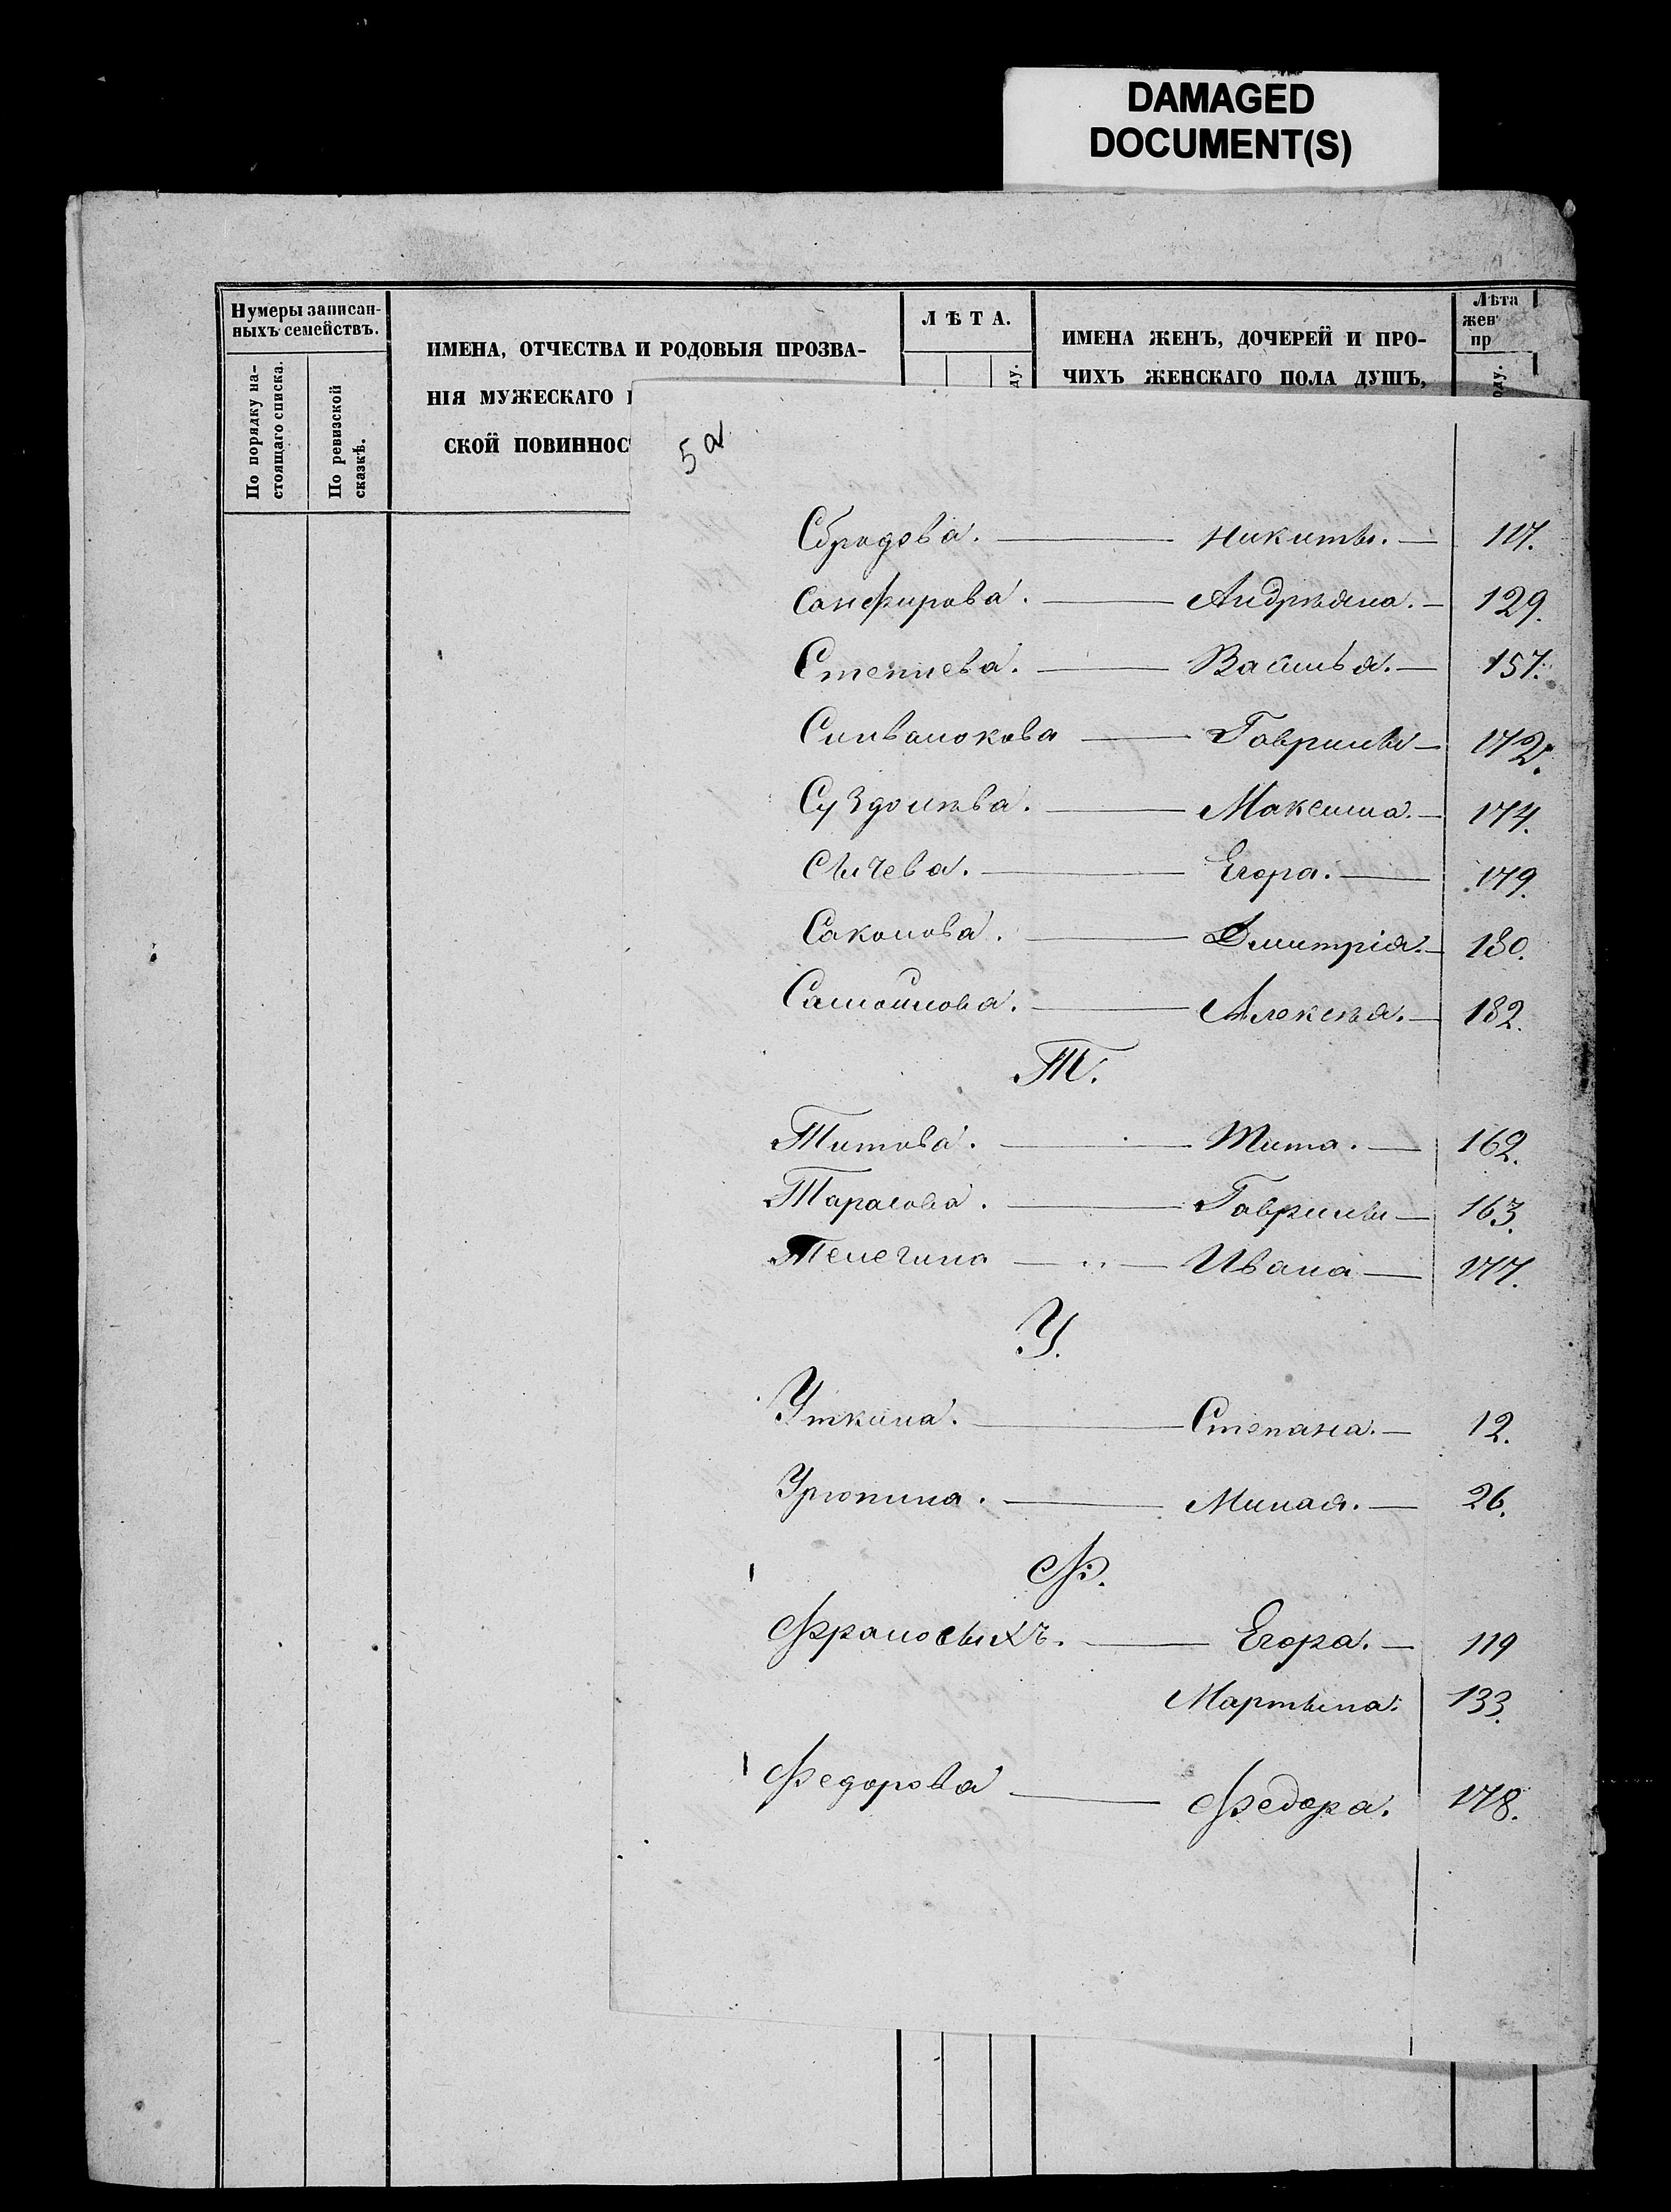 DAMAGED
DOCUMENT(S)
Нумеры записан-
ныхъ семействъ.
По порядку на-
стоящаго списка.
По ревизской
сказкѣ.
ИМЕНА, ОТЧЕСТВА И РОДОВЫЯ ПРОЗВА-
НІЯ МУЖЕСКАГО
СКОЙ ПОВИННОС
ЛѢТА.
ИМЕНА ЖЕНЪ, ДОЧЕРЕЙ И ПРО-
ЧИХЪ ЖЕНСКАГО ПОЛА ДУШЪ,
Лѣта
жен
пр
5а
Сбродова. — Никиты. — 117.
Санфирова. — Андрѣяна. — 129.
Степнева. — Василья. — 157.
Гаврилы — 172.
Суздолѣва. — Максима. — 174.
Сычева. — Егора. — 179.
Соколова. — Дмитрія. — 180.
Самойлова. — Алексѣя. — 182.
Т.
Титова. — Тита. — 162.
Тарасова. — Гаврилы — 163.
Телегина — Ивана — 177.
У.
Уткина. — Степана. — 12.
Урюпина. — Миная. — 26.
Ф.
Фроловыхъ. — Егора. — 119
Мартына. 133.
Федорова — Федора. 178.